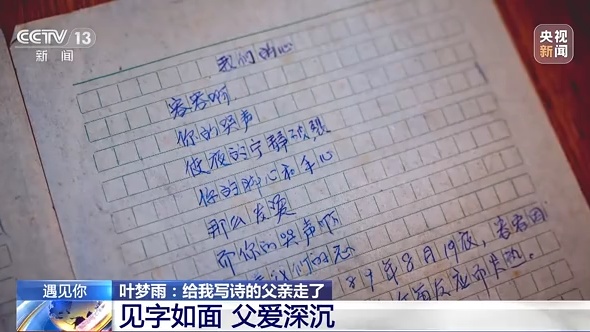 CCTV 13
新闻
央视
新闻
我们的心
容容啊
你的哭声
使夜的宁静破裂
你的脚心和手心
那么发烫
而你的哭声啊
我们的心
89年8月19夜,容容因
反应而失热。
遇见你
叶梦雨:给我写诗的父亲走了
见字如面 父爱深沉